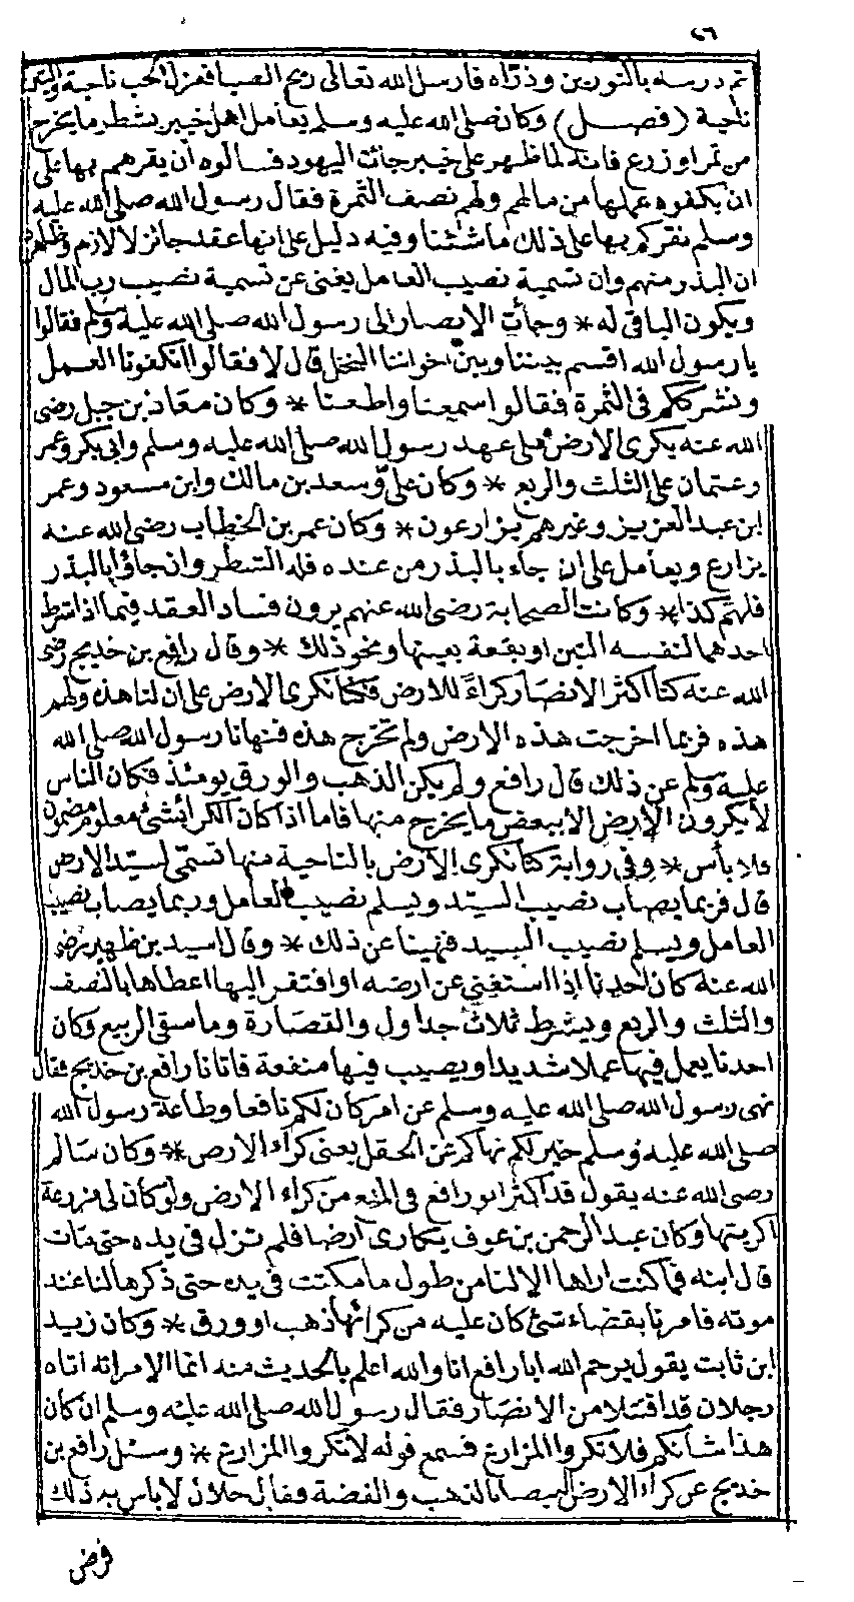 ٤٦
ثم درسه بالنورين وذرّاه فارسل الله تعالى ريح الصبا فعزل الحب ناحية والتبن
ناحية (فصل) وكان صلى الله عليه وسلم يعامل اهل خيبر بشطر ما يخرج
من تمر او زرع فانه لما ظهر على خيبر جائت اليهود فسالوه أن يقرهم بها على
ان يكفوه عملها من مالهم ولهم نصف الثمرة فقال رسول الله صلى الله عليه
وسلم نقركم بها على ذلك ما شئنا وفيه دليل على انها عقد جائز لا لازم وظاهره
ان البذر منهم وان تسمية نصيب العامل يغنى عن تسمية نصيب رب المال
ويكون الباقى له * وجأت الانصار الى رسول الله صلى الله عليه وسلم فقالوا
يا رسول الله اقسم بيننا وبين اخواننا النخل قال لا فقالوا اتكفونا العمل
ونشرككم فى الثمرة فقالوا سمعنا واطعنا * وكان معاذ بن جبل رضى
الله عنه يكرى الارض على عهد رسول الله صلى الله عليه وسلم وابى بكر وعمر
وعثمان على الثلث والربع * وكان علىّ وسعد بن مالك وابن مسعود وعمر
ابن عبد العزيز وغيرهم يزارعون * وكان عمر بن الخطاب رضى الله عنه
يزارع ويعامل على ان جاء بالبذر من عنده فله الشطر وان جاؤا بالبذر
فلهم كذا * وكانت الصحابة رضى الله عنهم يرون فساد العقد فيما اذا شرط
احدهما لنفسه التبن او بقعة بعينها ونحو ذلك * وقال رافع بن خديج رضى
الله عنه كنا اكثر الانصار كراءً للارض فكنا نكرى الارض على ان لنا هذه ولهم
هذه فربما اخرجت هذه الارض ولم تخرج هذه فنهانا رسول الله صلى الله
عليه وسلم عن ذلك قال رافع ولم يكن الذهب والورق يومئذ فكان الناس
لا يكرون الارض الا ببعض ما يخرج منها فاما اذا كان الكرا بشئ معلوم مضمون
فلا بأس * وفى رواية كنا نكرى الارض بالناحية منها تسمّى لسيد الارض
قال فربما يصاب نصيب السيد ويسلم نصيب العامل وربما يصاب نصيب
العامل ويسلم نصيب السيد فنهينا عن ذلك * وقال اسيد بن ظهير رضى
الله عنه كان احدنا اذا استغنى عن ارضه او افتقر اليها اعطاها بالنصف
والثلث والربع ويشرط ثلاث جداول والقصارة وما سقى الربيع وكان
احدنا يعمل فيها عملا شديدا ويصيب فيها منفعة فاتانا رافع بن خديج فقال
نهى رسول الله صلى الله عليه وسلم عن امر كان لكم نافعا وطاعة رسول الله
صلى الله عليه وسلم خير لكم نهاكم عن الحقل يعنى كراء الارض * وكان سالم
رضى الله عنه يقول قد اكثر ابو رافع فى المنع من كراء الارض ولو كان لى مزرعة
اكريتها وكان عبد الرحمن بن عوف يتكارى أرضا فلم تزل فى يده حتى مات
قال ابنه فما كنت اراها الا لنا من طول ما مكثت فى يده حتى ذكرها لنا عند
موته فامرنا بقضاء شئ كان عليه من كرائها ذهب او ورق * وكان زيد
ابن ثابت يقول يرحم الله ابا رافع انا والله اعلم بالحديث منه انما الامر انه اتاه
رجلان قد اقتتلا من الانصار فقال رسول الله صلى الله عليه وسلم ان كان
هذا شأنكم فلا تكروا المزارع فسمع قوله لا تكروا المزارع * وسئل رافع بن
خديج عن كراء الارض البيضا بالذهب والفضة فقال حلال لا باس به ذلك
فرض